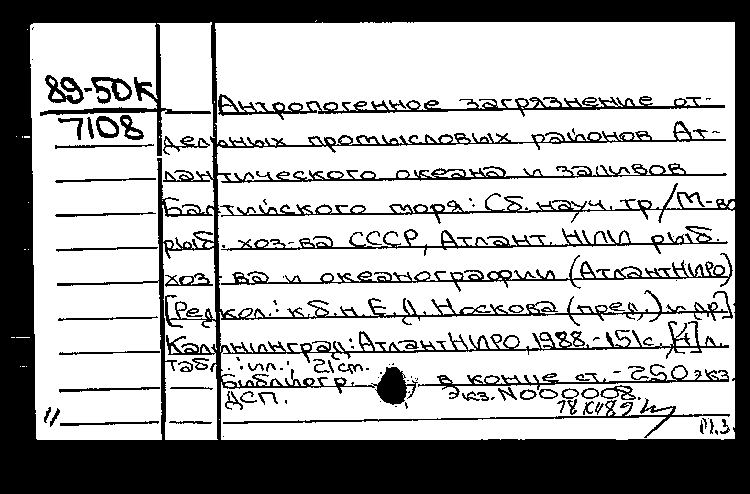 89-50К
7108
Антропогенное загрязнение от-
дельных промысловых районов Ат-
лантического океана и заливов
Балтийского моря: Сб. науч. тр./М-во
рыб. хоз-ва СССР, Атлант. НИИ рыб.
хоз-ва и океанографии (АтлантНИРО)
[Редкол.: к.б.н. Е.Д. Носкова (пред.) и др.]
Калининград: АтлантНИРО, 1988.-151с. [4] л.
табл.: ил.; 21см.
Библиогр. в конце ст. - 250 экз.
ДСП. Экз. N000008.
18 XII 89
11 М.З.